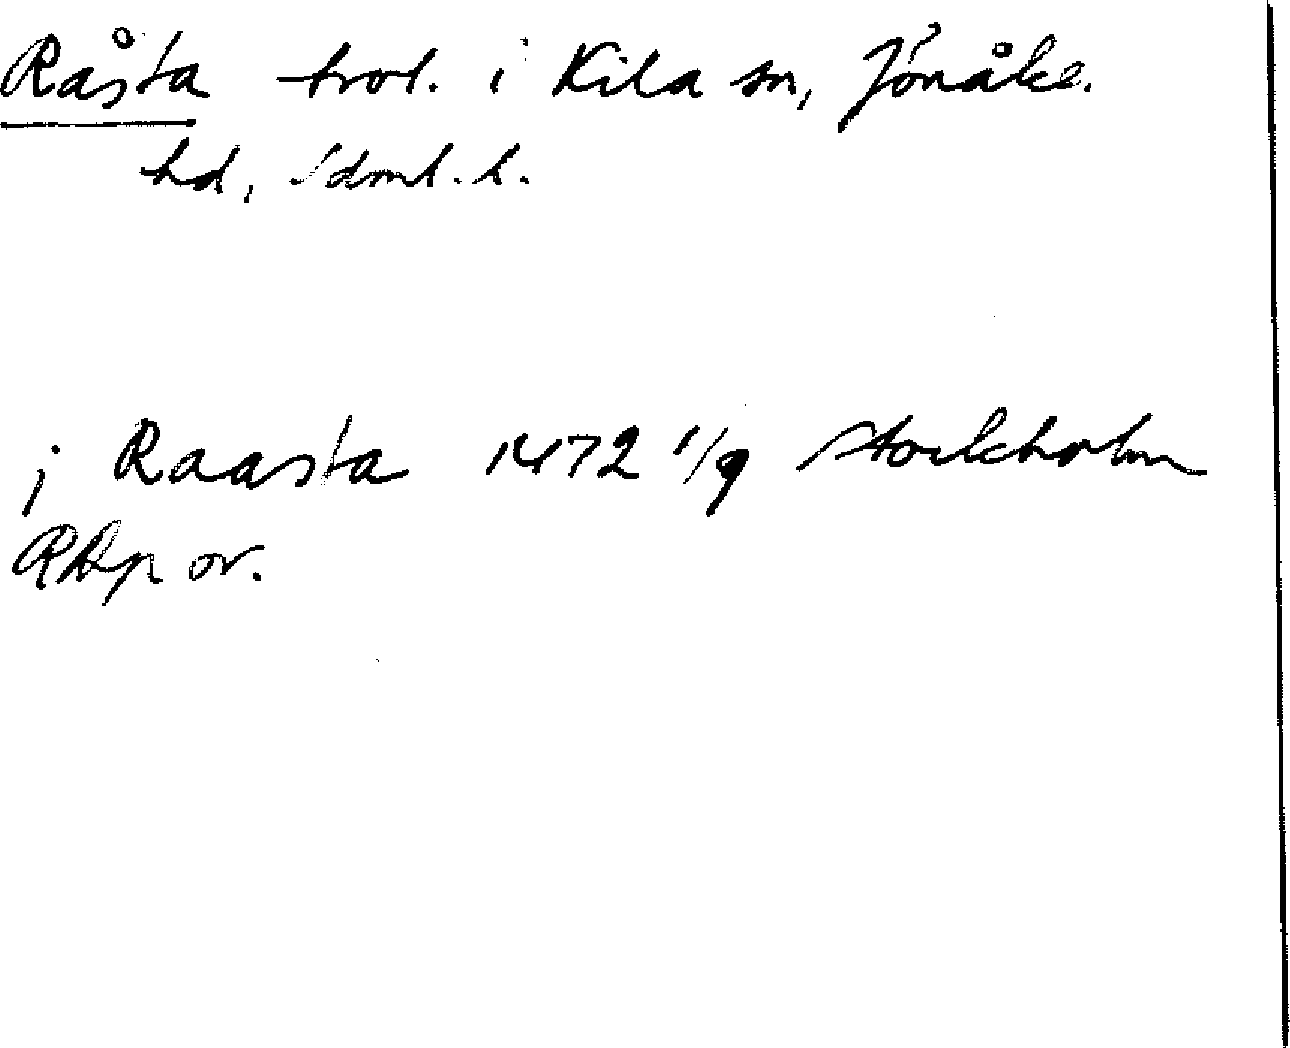 Råsta trol. i Kila sn, Jönåk.
hd, Sdml. l.
j Raasta 1472 1/9 Stockholm
RAp or.